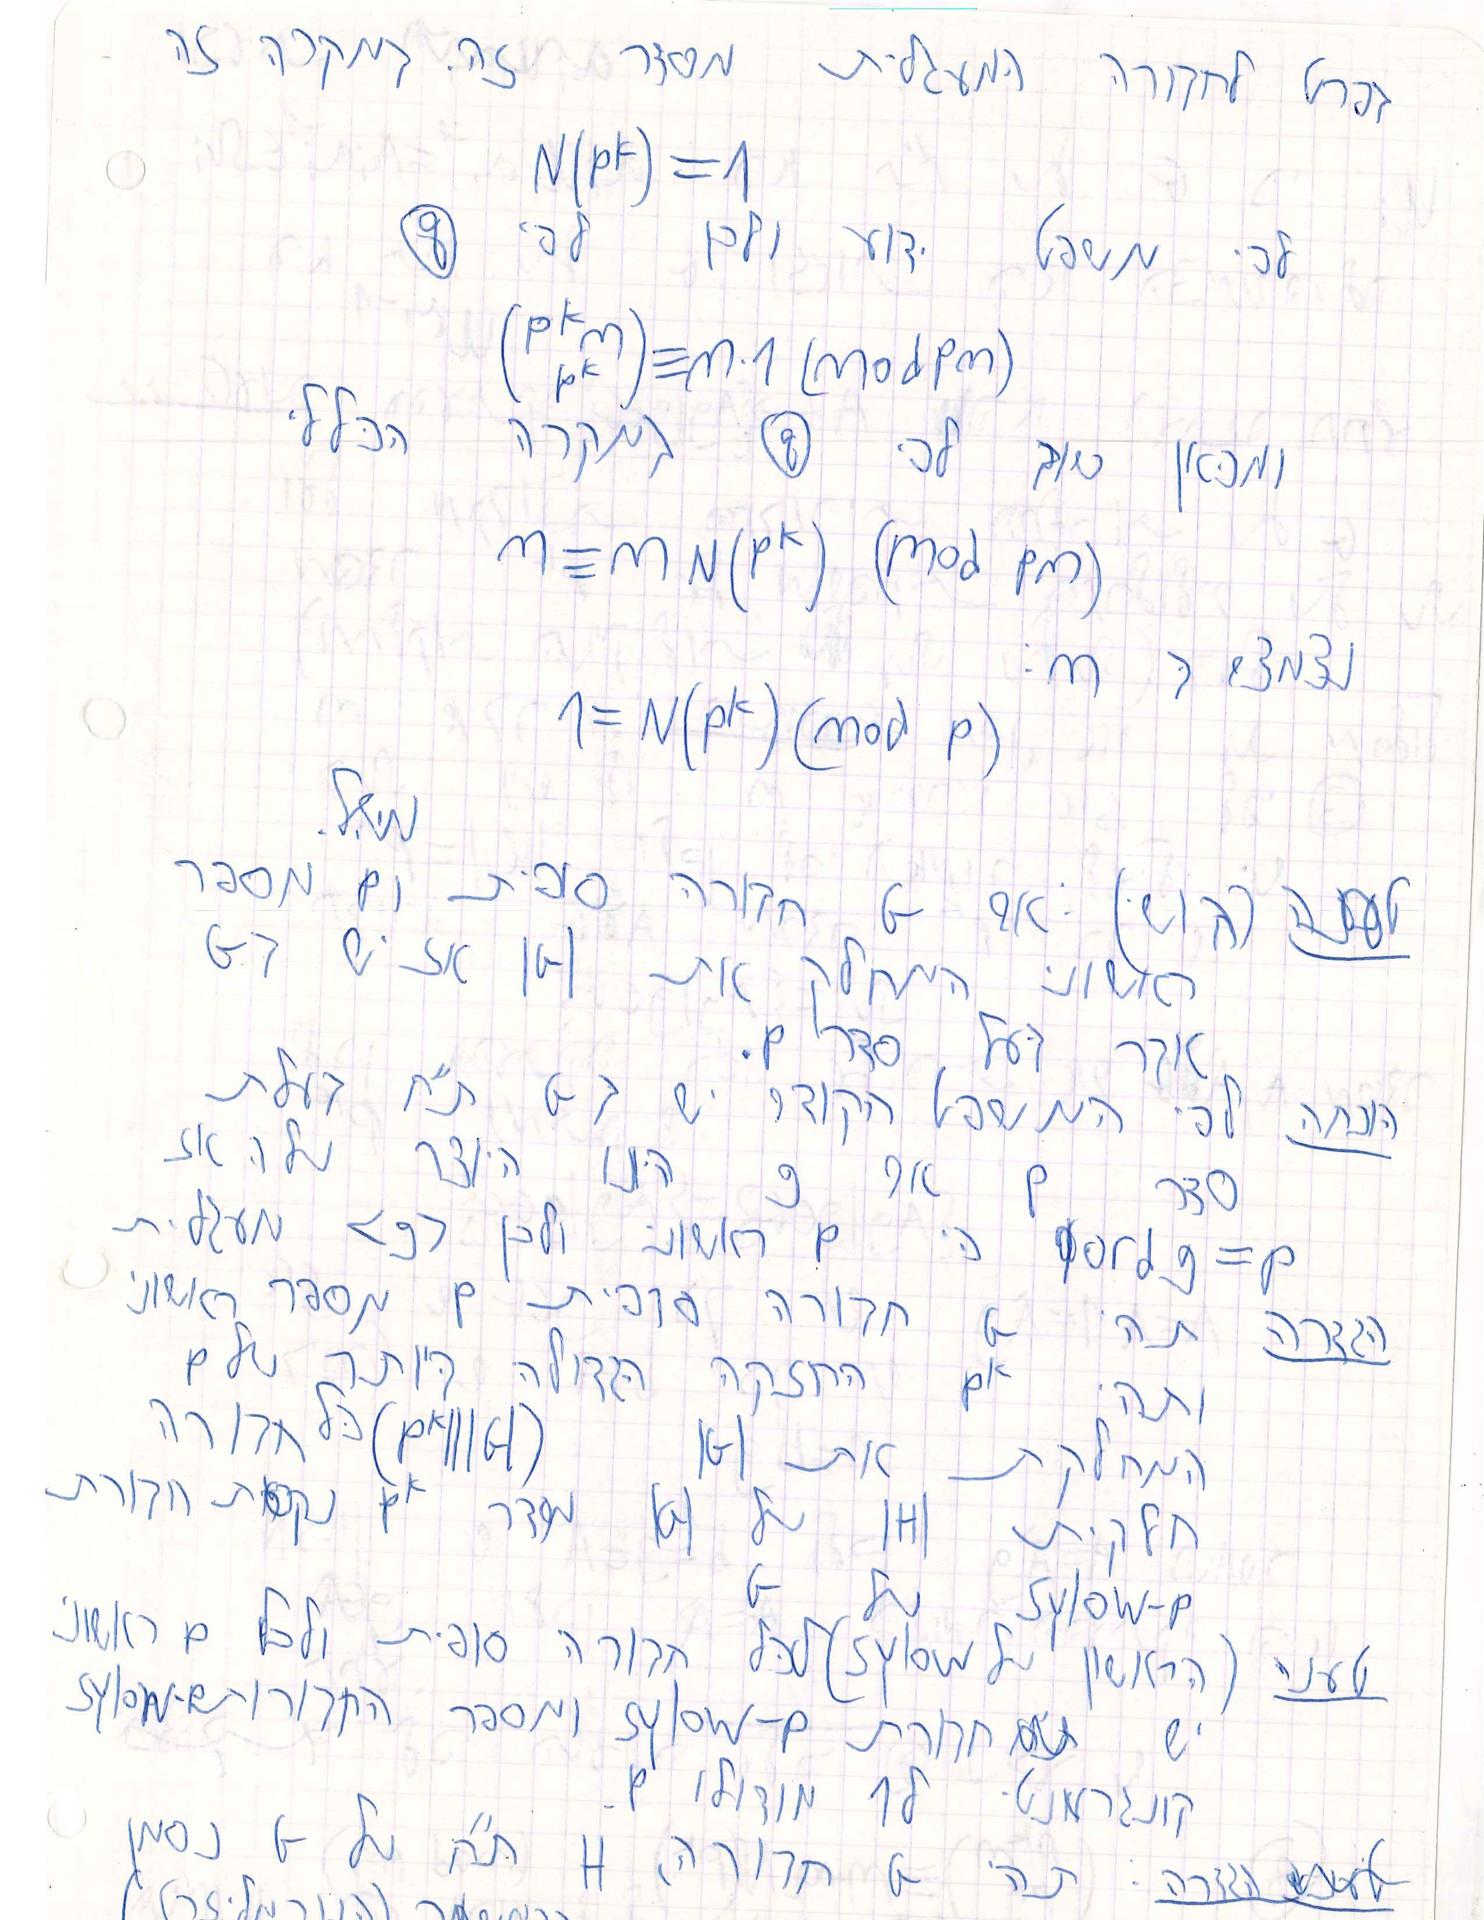 בפרט לחבורה המעגלית מסדר זה. במקרה זה
N(p^k) = 1
לפי משפט ידוע ולכן לפי
(p^k m p^k) ≡ m·1 (mod pm)
ומכאן שוב לפי במקרה הכללי
m ≡ m N(p^k) (mod pm)
נצמצם ב m:
1 = N(p^k) (mod p)
מש״ל.
טענה (קושי): אם G חבורה סופית ו p מספר
ראשוני המחלק את |G| אז יש ב G
אבר בעל סדר p.
הוכחה לפי המשפט הקודם יש ב G ת״ח בעלת
סדר p אם g הינו היוצר שלה אז
ord g = p כי p ראשוני ולכן <g> מעגלית
הגדרה תהי G חבורה סופית p מספר ראשוני
ותהי p^k החזקה הגדולה ביותר של p
המחלקת את |G| (p^k || |G|) כל חבורה
חלקית |H| של |G| מסדר p^k נקראת חבורת
p-sylow של G
טענה (הראשון של sylow) לכל חבורה סופית ולכל p ראשוני
יש חבורת p-sylow ומספר החבורות p-sylow
קונגרואנטי ל 1 מודולו p.
הגדרה: תהי G חבורה, H ת״ח של G נסמן